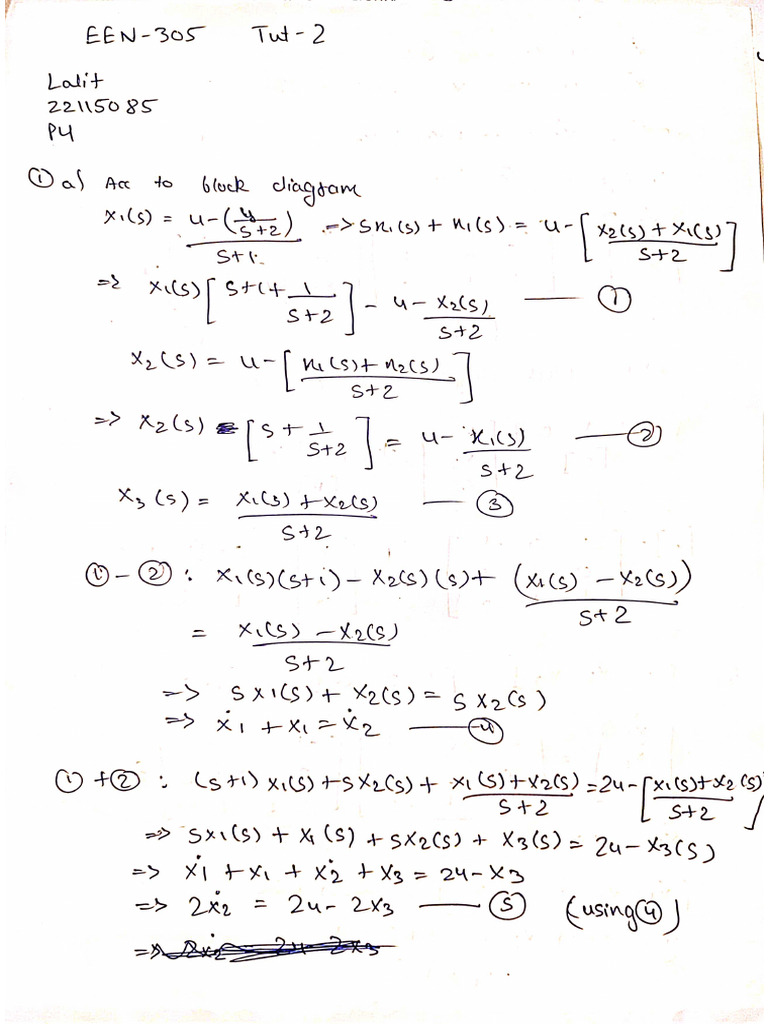 EEN-305 Tut-2
Lalit
22115085
P4
① a) Acc to block diagram
x1(s) = u-(y/(s+2)) / (s+1) => sx1(s) + x1(s) = u-[(x2(s)+x1(s))/(s+2)]
=> x1(s)[s+1+1/(s+2)] - u-x2(s)/(s+2) —— ①
x2(s) = u-[(x1(s)+x2(s))/(s+2)]
=> x2(s) [s+1/(s+2)] = u-x1(s)/(s+2) —— ②
x3(s) = (x1(s)+x2(s))/(s+2) —— ③
①-② : x1(s)(s+1) - x2(s)(s) + (x1(s)-x2(s))/(s+2)
= (x1(s)-x2(s))/(s+2)
=> sx1(s) + x2(s) = sx2(s)
=> ẋ1 + x1 = ẋ2 —— ④
①+② : (s+1)x1(s)+sx2(s)+(x1(s)+x2(s))/(s+2)=2u-[(x1(s)+x2(s))/(s+2)]
=> sx1(s)+x1(s)+sx2(s)+x3(s) = 2u-x3(s)
=> ẋ1 + x1 + ẋ2 + x3 = 2u-x3
=> 2ẋ2 = 2u-2x3 —— ⑤ (using④)
=> 2ẋ2 = 2u-2x3